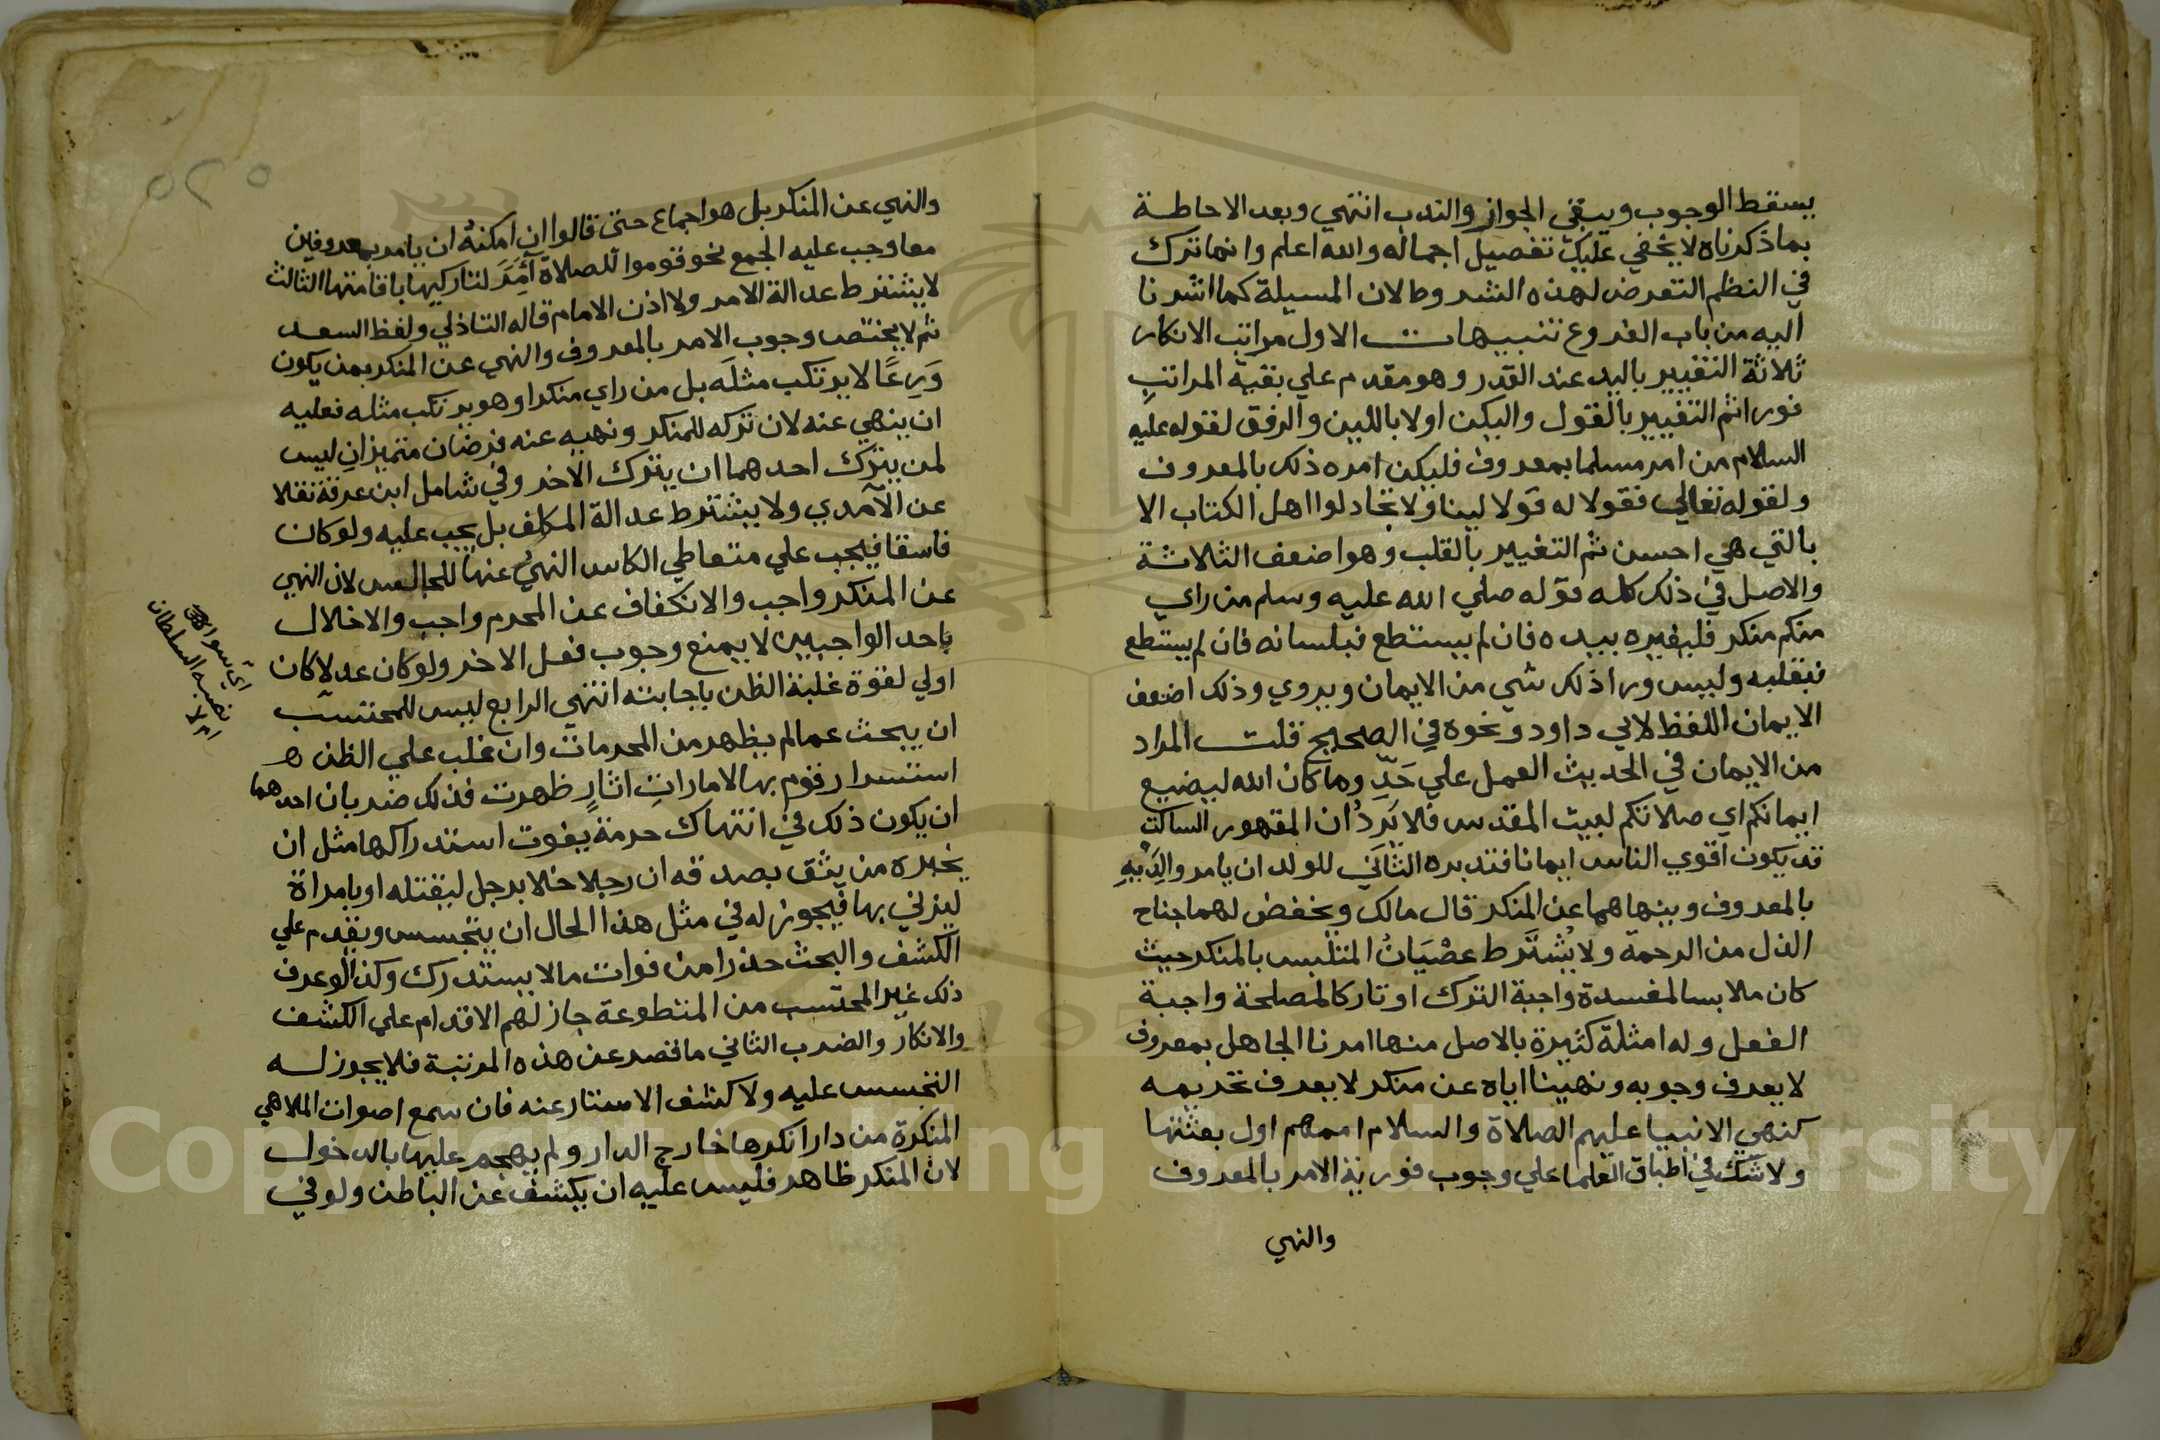 يسقط الوجوب ويبقي الجواز والندب انتهي وبعد الاحاطة
بما ذكرناه لا يخفي عليك تفصيل اجماله والله اعلم وانما ترك
في النظم التعرض لهذه الشروط لان المسيلة كما اشرنا
اليه من باب الفروع تنبيهات الاول مراتب الانكار
ثلاثة التغيير باليد عند القدر وهو مقدم علي بقية المراتب
فورا ثم التغيير بالقول واليكن اولا باللين والرفق لقوله عليه
السلام من امر مسلما بمعروف فليكن امره ذلك بالمعروف
ولقوله تعالي فقولا له قولا لينا ولا تجادلوا اهل الكتاب الا
بالتي هي احسن ثم التغيير بالقلب وهو اضعف الثلاثة
والاصل في ذلك كله قوله صلي الله عليه وسلم من راي
منكم منكر فليغيره بيده فان لم يستطع فبلسانه فان لم يستطع
فبقلبه وليس ورا ذلك شي من الايمان ويروي وذلك اضعف
الايمان اللفظ لابي داود ونحوه في الصحيح قلت المراد
من الايمان في الحديث العمل علي حَدِّ وما كان الله ليضيع
ايمانكم اي صلاتكم لبيت المقدس فلا يَرِدُ ان المقهور الساكت
قد يكون اقوي الناس ايمانا فتدبره الثاني للولد ان يامر والِدَيْهِ
بالمعروف وينهاهما عن المنكر قال مالك ويخفض لهما جناح
الذل من الرحمة ولا يُشْتَرط عصْيَانُ المتلبس بالمنكر حيث
كان ملابسا لمفسدة واجبة الترك او تاركا لمصلحة واجبة
الفعل وله امثلة كثيرة بالاصل منها امرنا الجاهل بمعروف
لا يعرف وجوبه ونهينا اياه عن منكر لا يعرف تحريمه
كنهي الانبيا عليهم الصلاة والسلام اممهم اول بعثتها
ولا شك في اطباق العلما علي وجوب فورية الامر بالمعروف
والنهي
والنهي عن المنكر بل هو اجماع حتى قالوا ان امكنهُ ان يامر بمعروفين
معا وجب عليه الجمع نحو قوموا للصلاة آمِرَ لتاركيها باقامتها الثالث
لا يشترط عدالة الامر ولا اذن الامام قاله الشاذلي ولفظ السعد
ثم لا يختص وجوب الامر بالمعروف والنهي عن المنكر بمن يكون
وَرِعًا لا يرتكب مثلَه بل من راي منكرا وهو يرتكب مثله فعليه
ان ينهي عنه لان تركه للمنكر ونهيه عنه فرضان متميزان ليس
لمن يترك احدهما ان يترك الاخر وفي شامل ابن عرفة نقلا
عن الآمدي ولا يشترط عدالة المكلف بل يجب عليه ولو كان
فاسقا فيجب علي متعاطي الكاس النهيُ عنها للجالس لان النهي
عن المنكر واجب والانكفاف عن المحرم واجب والاخلال
باحد الواجبين لا يمنع وجوب فعل الاخر ولو كان عدلا كان
اولي لقوة غلبة الظن باجابته انتهي الرابع ليس للمحتسب
ان يبحث عما لم يظهر من المحرمات وان غلب علي الظن
استسرار قوم بها لاماراتِ اثارٍ ظهرت فذلك ضربان احدهما
ان يكون ذلك في انتهاك حرمة يفوت استدراكها مثل ان
يخبره من يثق بصدقه ان رجلا خلا برجل ليقتله او بامراة
ليزني بها فيجوز له في مثل هذا الحال ان يتجسس ويقدم علي
الكشف والبحث حذرا من فوات ما لا يستدرك وكذا لو عرف
ذلك غير المحتسب من المتطوعة جاز لهم الاقدام علي الكشف
والانكار والضرب الثاني ما قصر عن هذه المرتبة فلا يجوز له
التجسس عليه ولا كشف الاستار عنه فان سمع اصوات الملاهي
المنكرة من دار انكرها خارج الدار ولم يهجم عليها بالدخول
لان المنكر ظاهر فليس عليه ان يكشف عن الباطن ولو في
اي سوا
نصبه السلطان
ام لا
Copyright © King Saud University